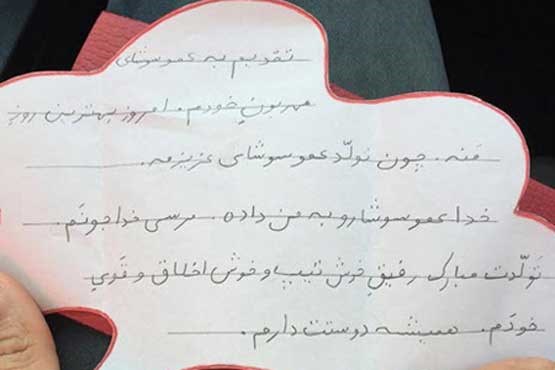 تقدیم به عمو سوشای
مهربونِ خودم. امروز بهترین روزِ
مَنه. چون تولّد عمو سوشای عزیزمه.
خدا عمو سوشا رو به من داده. مرسی خدا جونَم.
تَولّدت مبارک رفیقِ خوش تیپ و خوش اخلاق و قَویِ
خودَم. همیشه دوستت دارم.